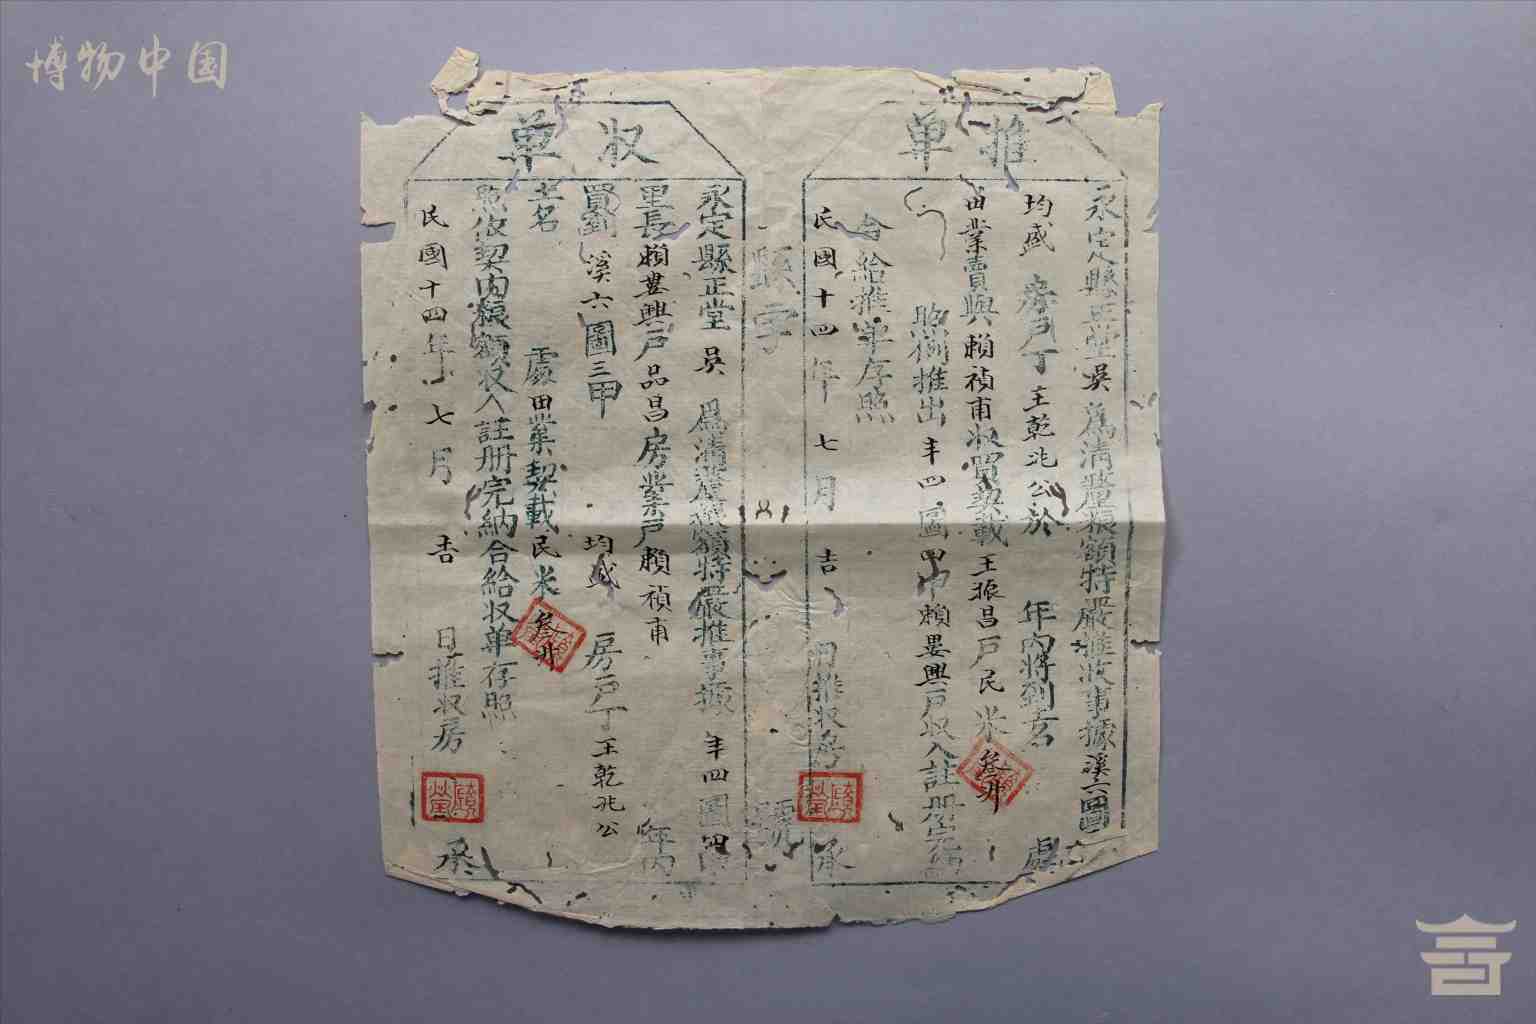 博物中国
推单
永定縣正堂吳為清釐粮額特嚴推收事據溪六圖
均盛房戶丁王乾兆公於年內將到言名處
田業賣與賴禎甫收買契載王振昌戶民米叁升
照例推出丰四圖四甲賴興戶收入註册完納
合給推单存照
民國十四年七月吉日推收房承
縣字號
収单
永定縣正堂吳為清釐粮額特嚴推事據丰四圖四
里長賴興戶品昌房業戶賴禎甫年内
買劉溪六圖三甲均盛房戶丁王乾兆公
言名處田業契載民米叁升
照依契内粮額収入註册完納合給収单存照
民國十四年七月吉日推収房承